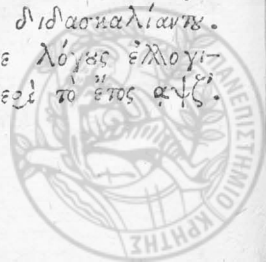 διδασκαλίαντε.
ε λόγους ἐλλογι-
ερὶ τὸ ἔτος ͵αψζʹ.
ΠΑΝΕΠΙΣΤΗΜΙΟ ΚΡΗΤΗΣ